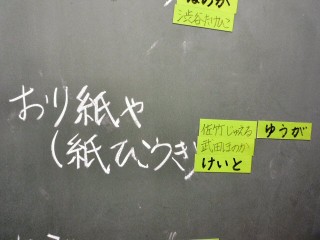 ほのか
渋谷たけひこ
おり紙や
(紙ひこうき)
佐竹じゅえる
武田ほのか
けいと
ゆうが